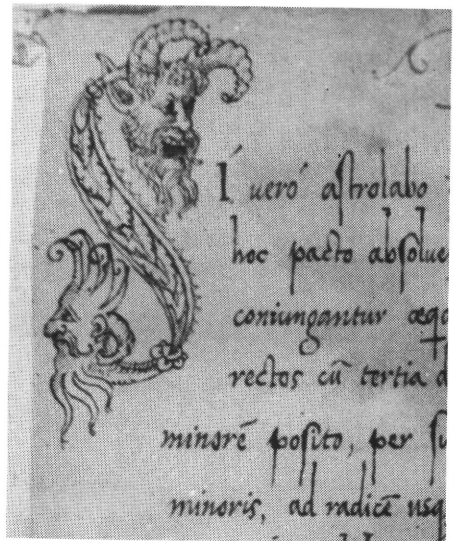 SI vero astrolabo
hoc pacto absolue
coniungantur æqd
rectos cū tertia d
minorē posito, per su
minoris, ad radicē usq